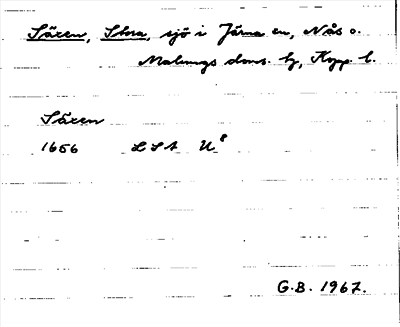 Säxen, Stora, sjö i Järna sn, Nås o.
Malungs doms. hg, Kopp. l.
Säxen
1656 LSA U⁸
G.B. 1967.